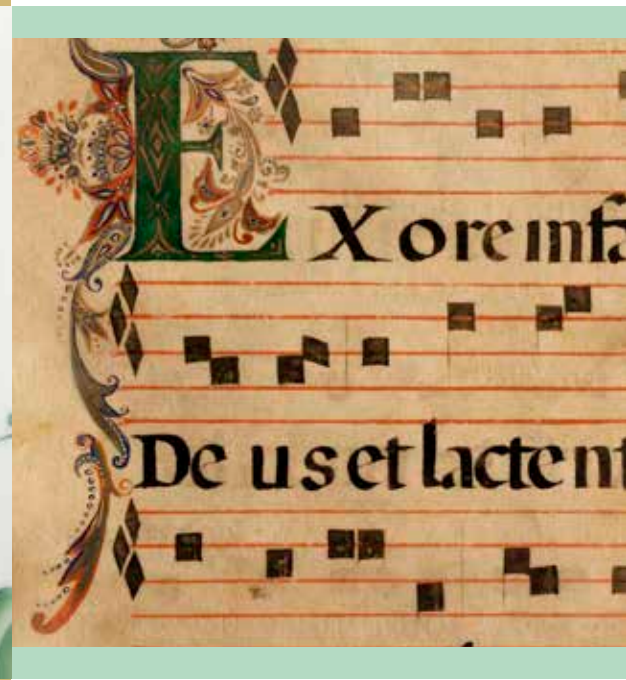 EX ore infa
Deus et lactent